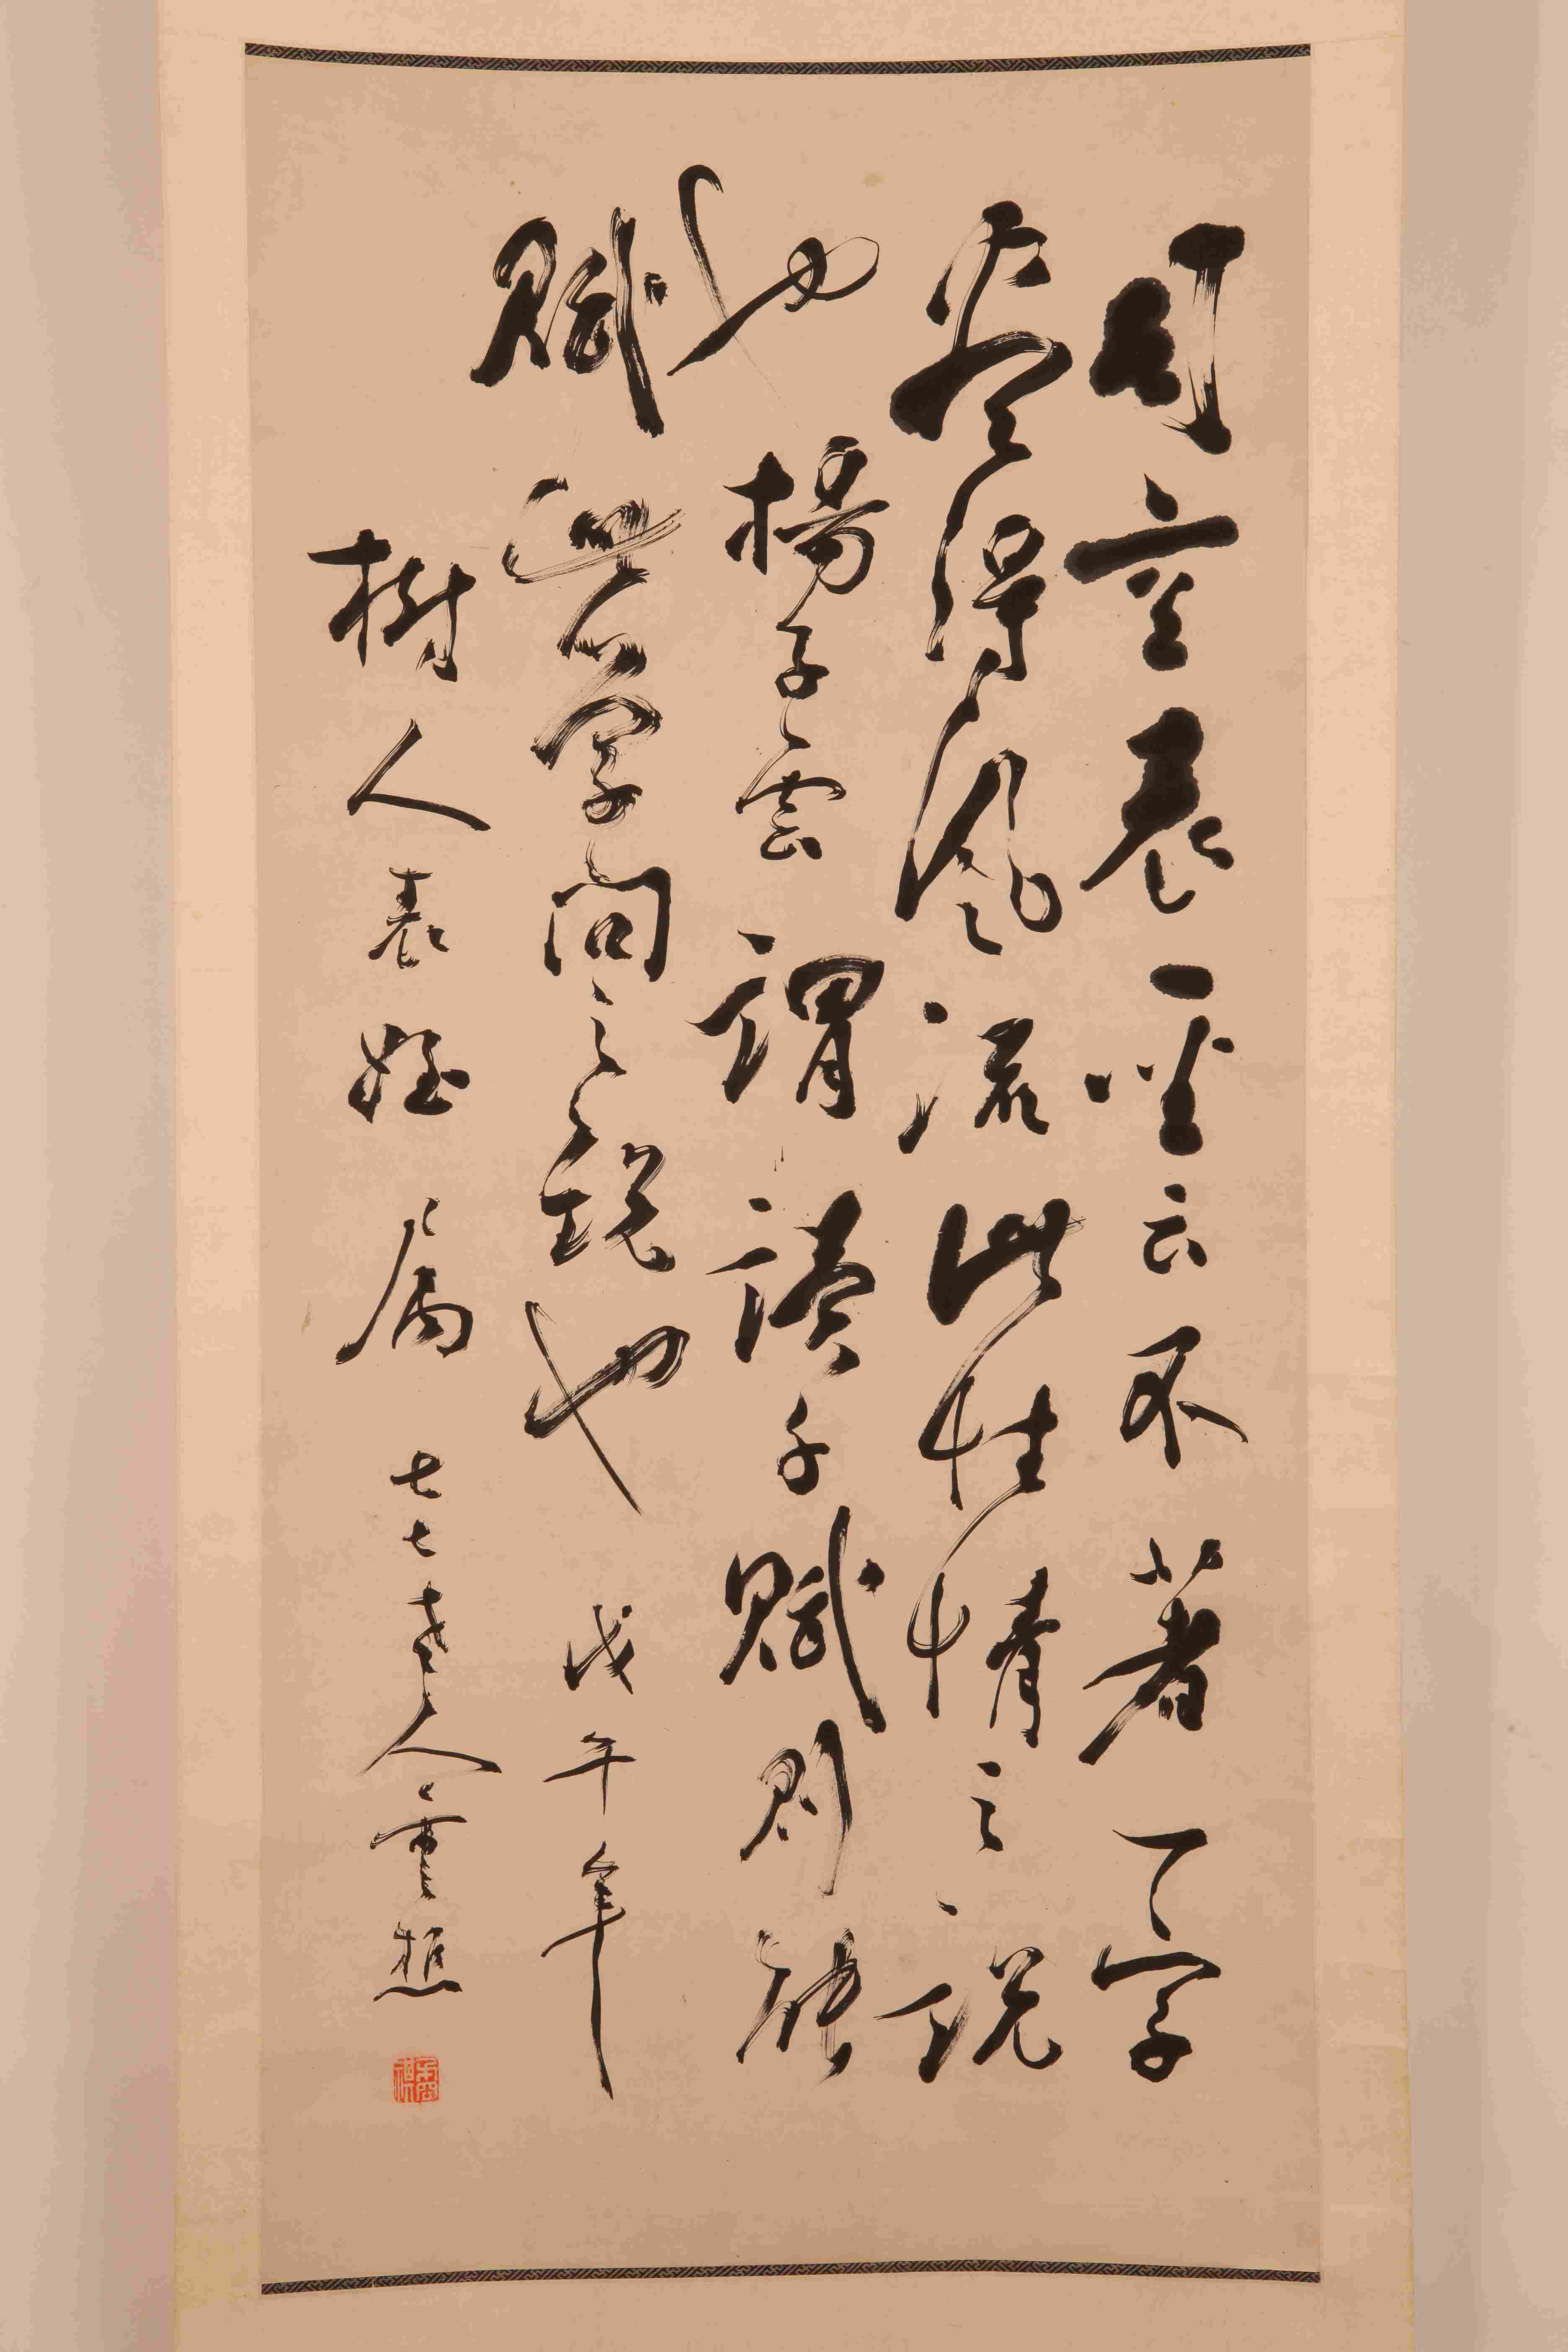 司空表聖云不著一字
盡得風流此性情之說
也楊子雲謂讀千賦則能
賦此學問之說也戊午年
樹人表姪屬七七老人重想